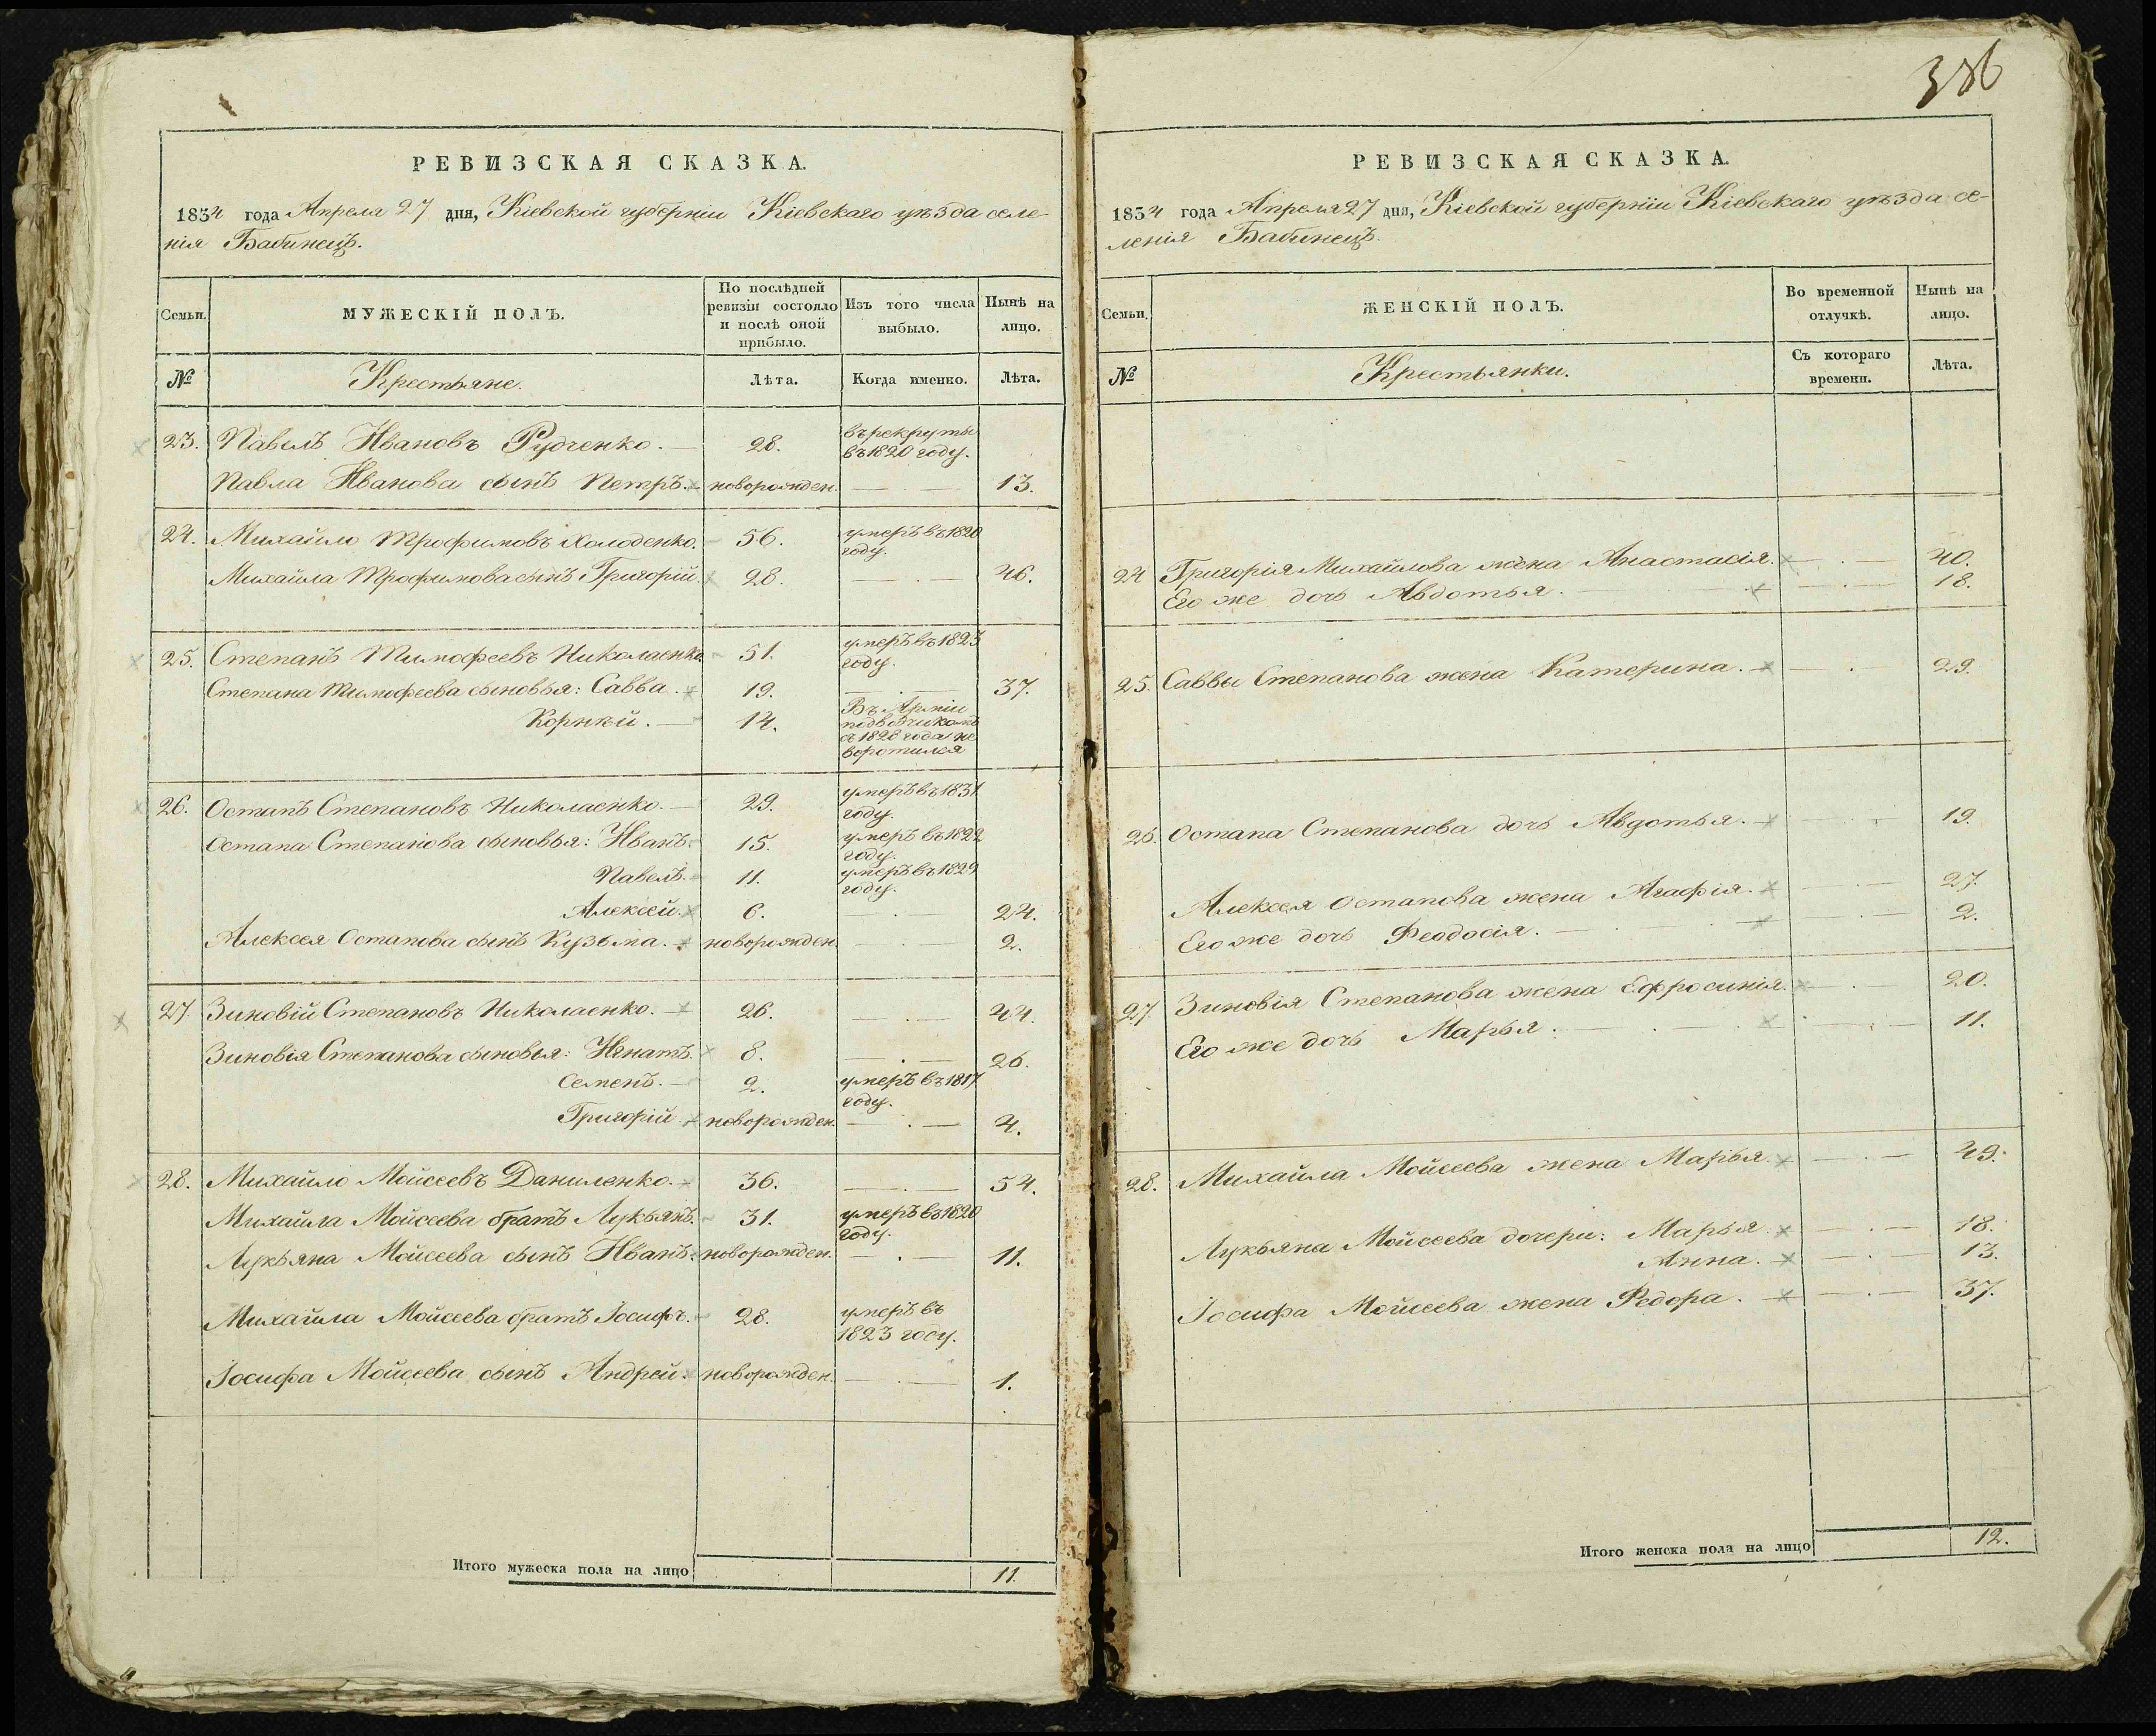 386
РЕВИЗСКАЯ СКАЗКА.
1834 года Апреля 27 дня, Кіевской губерніи Кіевскаго уѣзда селе-
нія Бабинецъ.
Семьи. МУЖЕСКІЙ ПОЛЪ. По послѣдней ревизіи состояло и послѣ оной прибыло. Изъ того числа выбыло. Нынѣ на лицо.
№ Крестьяне. Лѣта. Когда именно. Лѣта.
23. Павелъ Ивановъ Рудченко. 28. въ рекруты въ 1820 году.
Павла Иванова сынъ Петръ. новорожден. 13.
24. Михайло Трофимовъ Холоденко. 56. умеръ въ 1820 году.
Михайла Трофимова сынъ Григорій. 28. 46.
25. Степанъ Тимофеевъ Николаенко. 51. умеръ въ 1823 году.
Степана Тимофеева сыновья: Савва. 19. 37.
Корнѣй. 14. Въ Арміи подвозчикомъ съ 1828 года не воротился
26. Остапъ Степановъ Николаенко. 29. умеръ въ 1831 году.
Остапа Степанова сыновья: Иванъ. 15. умеръ въ 1822 году.
Павелъ. 11. умеръ въ 1829 году.
Алексей. 6. 24.
Алексея Остапова сынъ Кузьма. новорожден. 2.
27. Зиновій Степановъ Николаенко. 26. 44.
Зиновія Степанова сыновья: Игнатъ. 8. 26.
Семенъ. 2. умеръ въ 1817 году.
Григорій новорожден. 4.
28. Михайло Мойсеевъ Даниленко. 36. 54.
Михайла Мойсеева братъ Лукьянъ. 31. умеръ въ 1820 году.
Лукьяна Мойсеева сынъ Иванъ. новорожден. 11.
Михайла Мойсеева братъ Іосифъ. 28. умеръ въ 1823 году.
Іосифа Мойсеева сынъ Андрей. новорожден. 1.
Итого мужеска пола на лицо 11.
РЕВИЗСКАЯ СКАЗКА.
1834 года Апреля 27 дня, Кіевской губерніи Кіевскаго уѣзда се-
ленія Бабинецъ.
Семьи. ЖЕНСКІЙ ПОЛЪ. Во временной отлучкѣ. Нынѣ на лицо.
№ Крестьянки. Съ котораго времени. Лѣта.
24 Григорія Михайлова жена Анастасія. 40.
Его же дочь Авдотья. 18.
25. Саввы Степанова жена Катерина. 29.
26. Остапа Степанова дочь Авдотья. 19.
Алексея Остапова жена Агафія. 27.
Его же дочь Феодосія. 2.
27. Зиновія Степанова жена Ефросинія. 20.
Его же дочь Марья. 11.
28. Михайла Мойсеева жена Марья. 49.
Лукьяна Мойсеева дочери: Марья. 18.
Анна. 13.
Іосифа Мойсеева жена Федора. 37.
Итого женска пола на лицо 12.